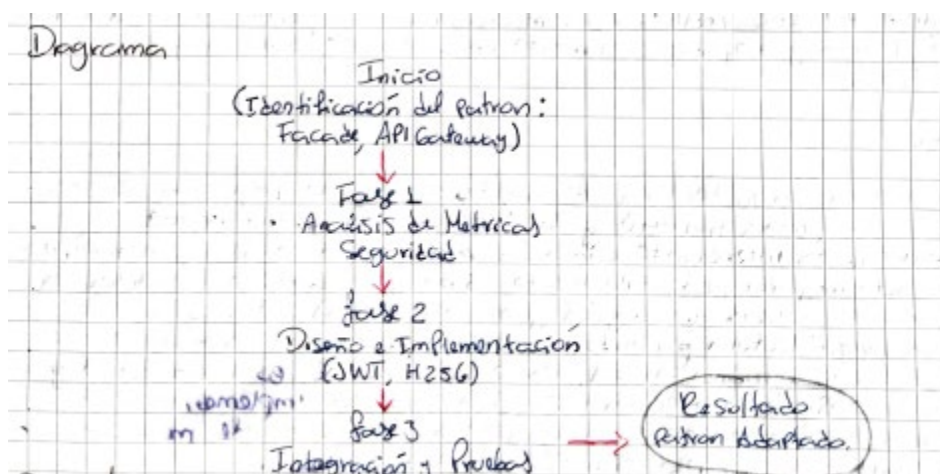 Diagrama
Inicio
(Identificación del patron:
Facade, API Gateway)
Fase 1
Analisis de Metricas
Seguridad
fase 2
Diseño e Implementación
(JWT, H256)
fase 3
Integración y Pruebas
Resultado
Patron Adaptado.